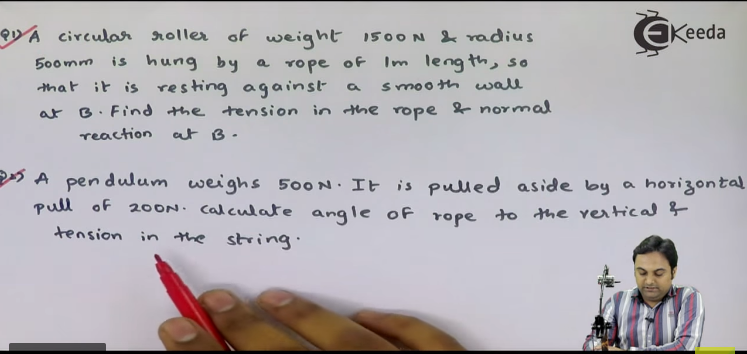 Q1) A circular roller of weight 1500N & radius
500mm is hung by a rope of 1m length, so
that it is resting against a smooth wall
at B. Find the tension in the rope & normal
reaction at B.
Q2) A pendulum weighs 500N. It is pulled aside by a horizontal
pull of 200N. Calculate angle of rope to the vertical &
tension in the string.
Ekeeda